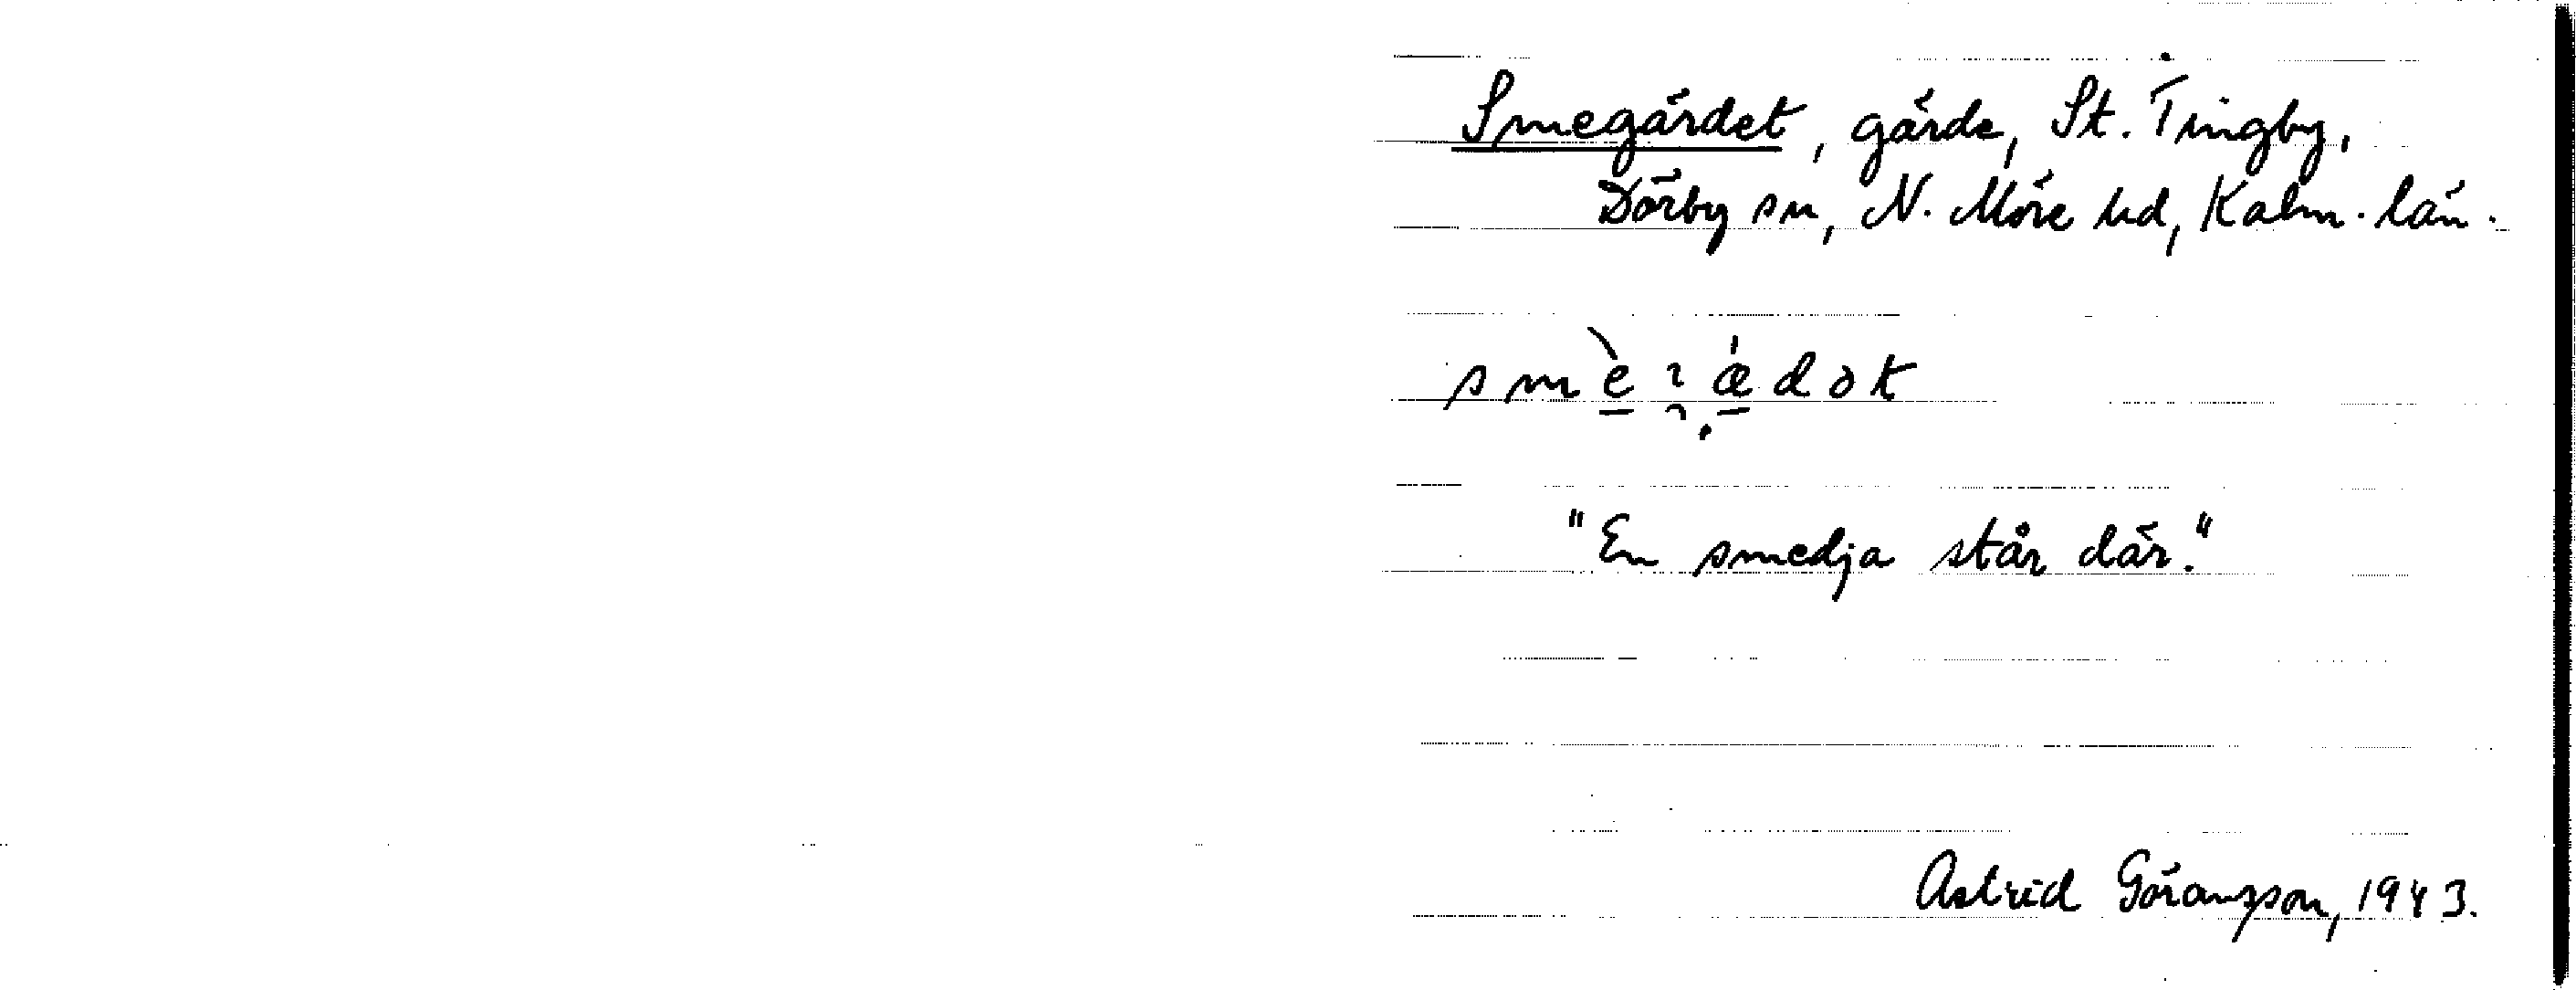 Smegärdet, gärde, St. Tingby,
Dörby sn, N. Möre hd, Kalm. län.
"En smedja står där."
Astrid Göransson, 1943.